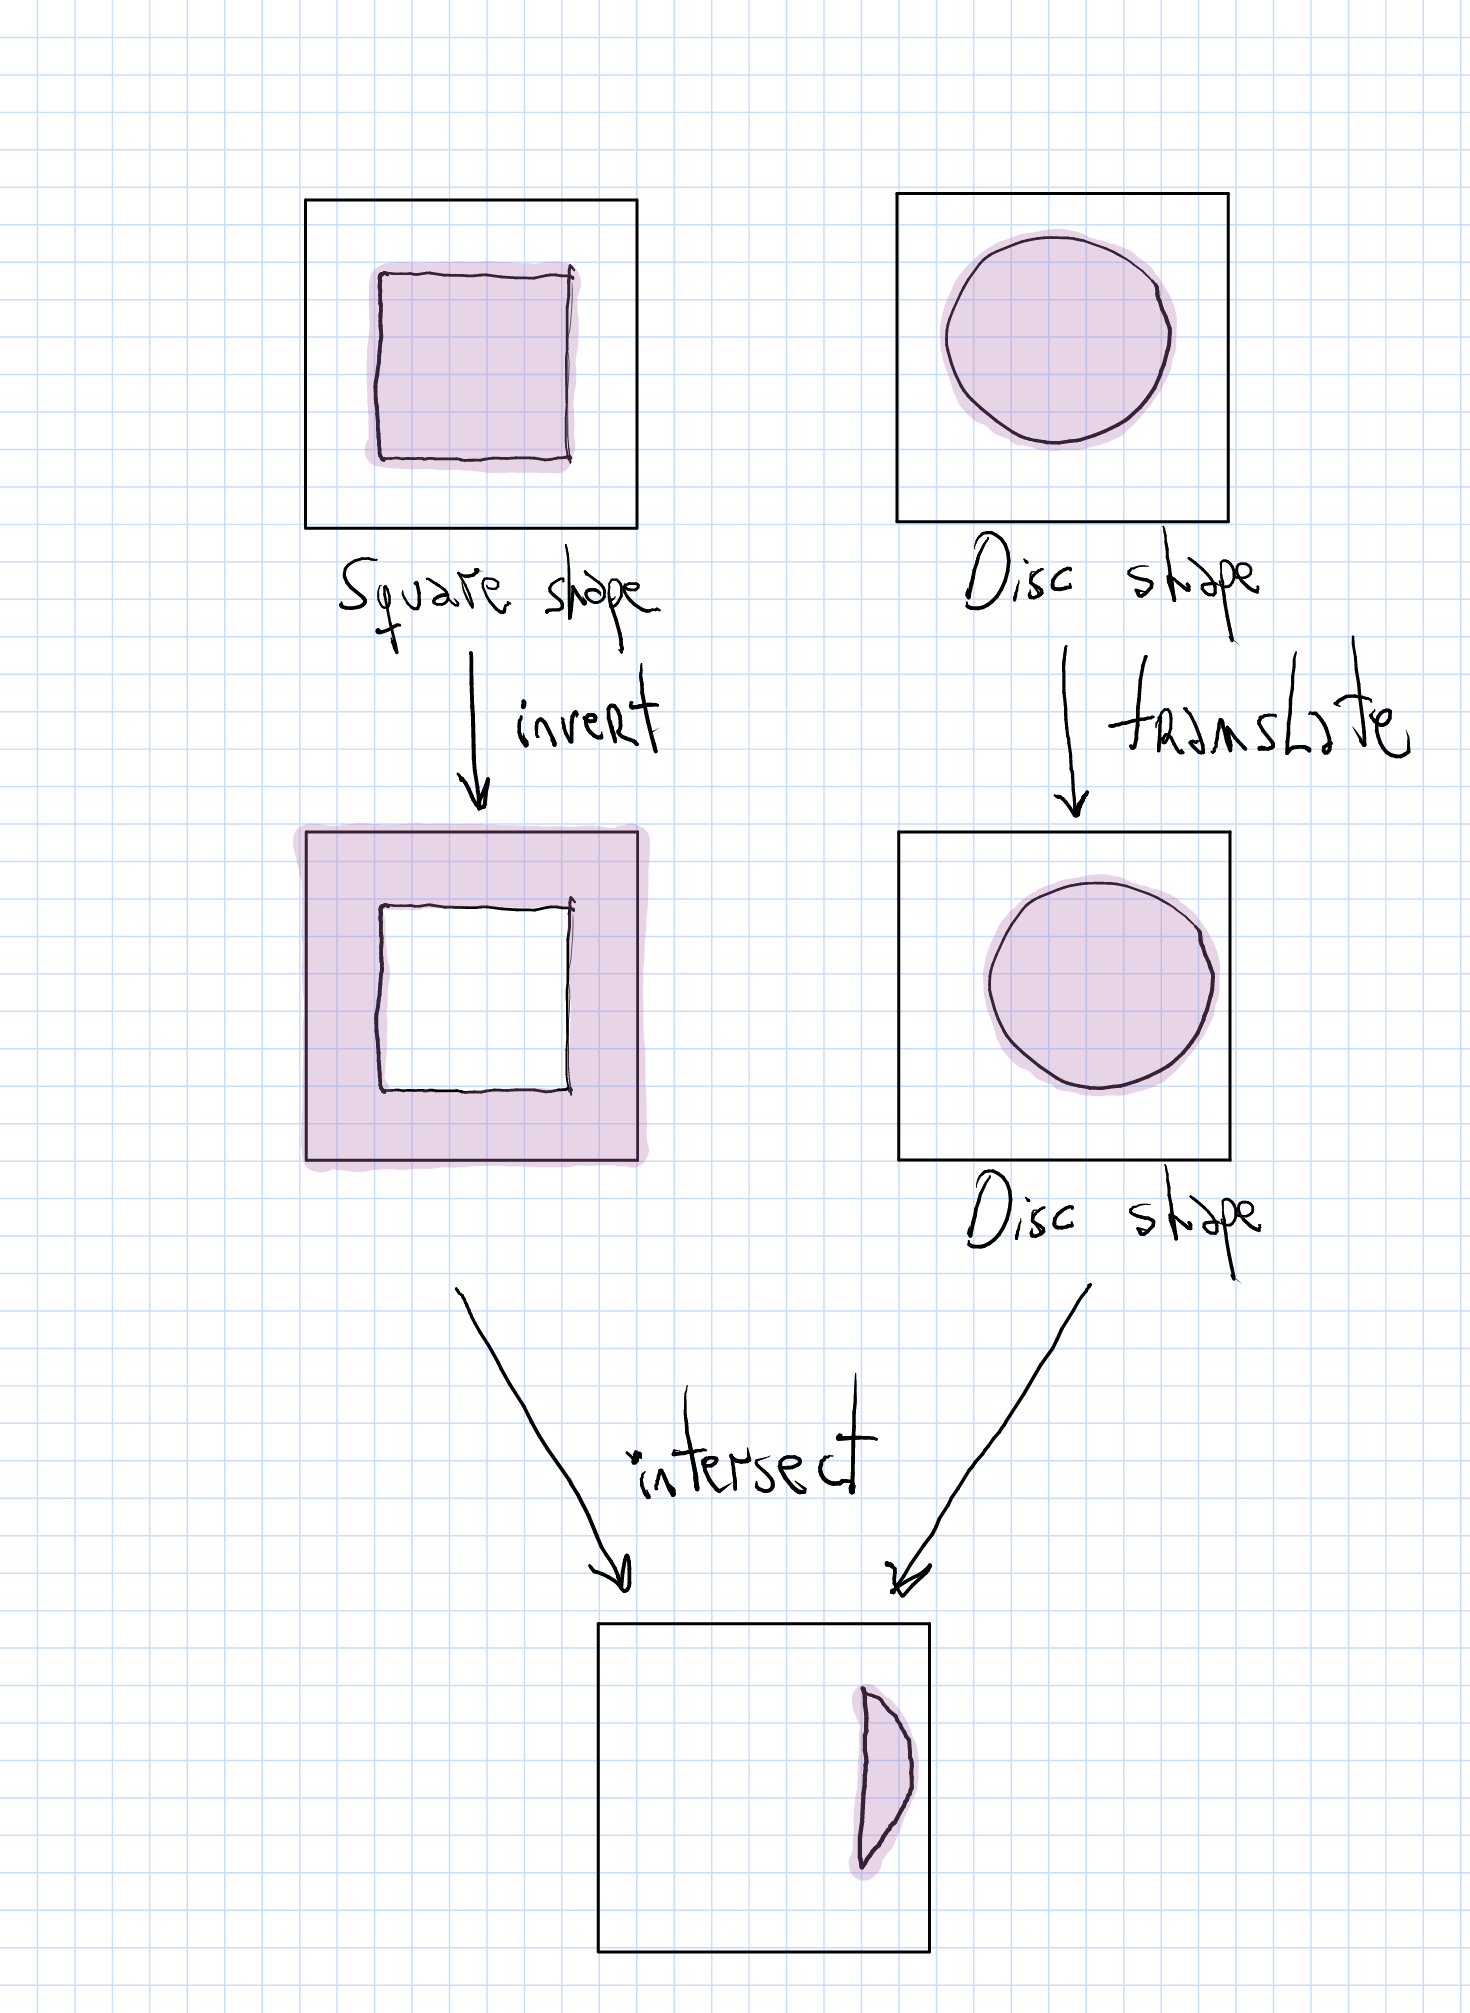 Square shape
Disc shape
invert
translate
Disc shape
intersect